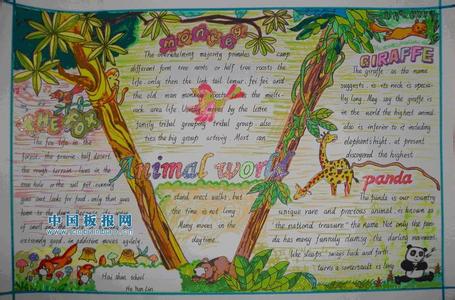 monkey
The overwhelming majority primates camp
different form tree roots or half tree roosts the
life only then the link tail lemur, fei fei and
the old man monkey roosts in the melts-
rock area life. Usually moves by the letter
family tribal grouping tribal group also
ties the big group activity. Most can
stand erect walks, but
the time is not long
Many moves in the
daytime.
GIRAFFE
The giraffe as the name
suggests, is its neck is specia-
lly long. May say the giraffe is
in the world the highest animal
also is inferior to it including
elephants hight, at present
discoged the highest
THE FOX
The fox life in the
forest, the prairie, half desert,
the rough terrain, lives in the
tree hole or the soil pit, evening
goes out, looks for food, only then goes
home to
extremely good, in addition moves agilely
Animal world
panda
The panda is our country
unique rare and precious animal, is known as
"the national treasure" the name. Not only the pan-
da has many funnily claining the darling movement
like sleeps, swings back and forth
turns a somersault as long
中国板报网
www.cnbanbao.cn
Hai shan school
He Yun Lin